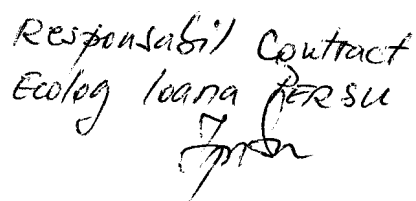 Responsabil Contract
Ecolog Ioana PERSU